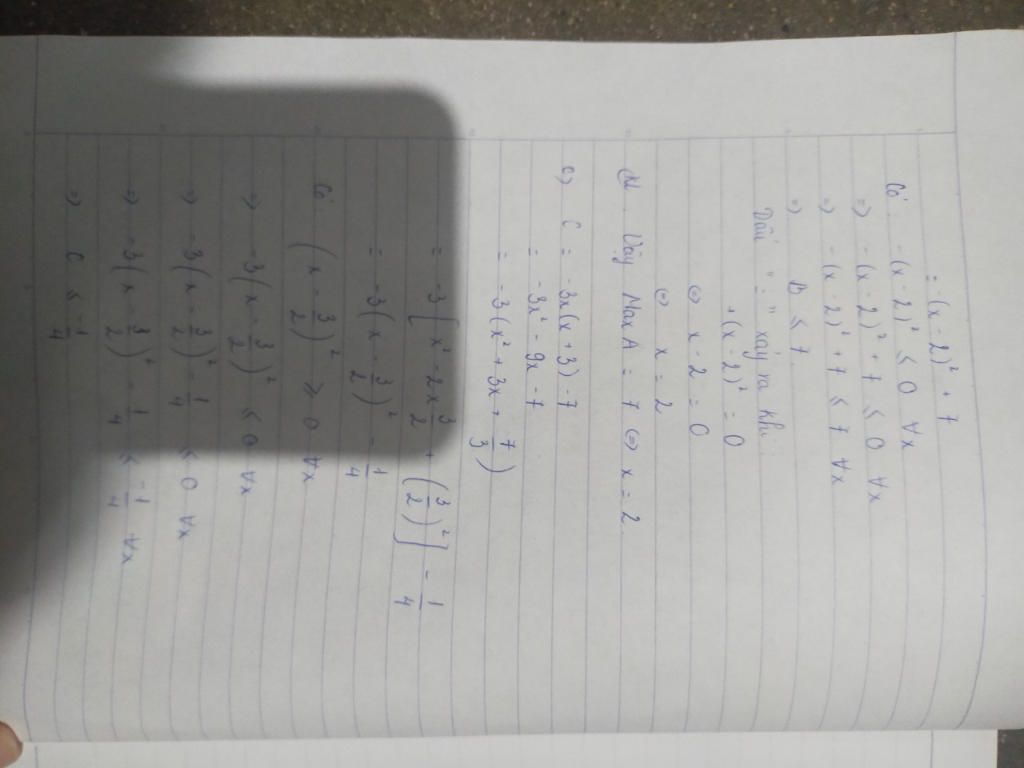 = -(x - 2)² + 7
Có -(x - 2)² ≤ 0 ∀x
=> -(x - 2)² + 7 ≤ 0 ∀x
=> -(x - 2)² + 7 ≤ 7 ∀x
=> B ≤ 7
Dấu "=" xảy ra khi:
+(x - 2)² = 0
<=> x - 2 = 0
<=> x = 2
Vậy Max A = 7 <=> x = 2
c) C = -3x(x + 3) - 7
= -3x² - 9x - 7
= -3(x² + 3x + 7/3)
= -3[x² - 2x 3/2 + (3/2)²] - 1/4
= -3(x - 3/2)² - 1/4
Có (x - 3/2)² ≥ 0 ∀x
=> -3(x - 3/2)² ≤ 0 ∀x
=> -3(x - 3/2)² - 1/4 ≤ 0 ∀x
=> -3(x - 3/2)² - 1/4 ≤ -1/4 ∀x
=> C ≤ -1/4